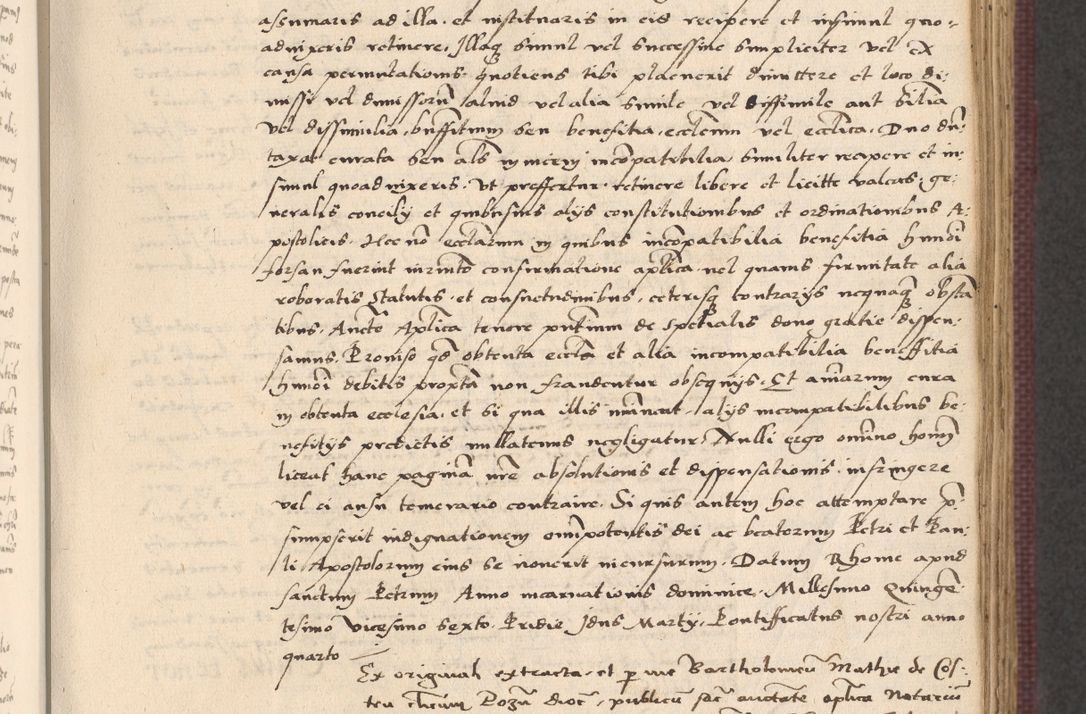 assumaris ad illa. et instituaris in eis recipere et insimul quo-
advixeris retinere. Illaq3 simul vel successive simpliciter vel ex
causa permutationis. quotiens tibi placuerit dimittere et loco di-
missi vel dimissorũ aliud vel alia simile vel dissimile aut similia
vel dissimilia. beneffitium seu benefitia. ecclesiam vel ecclica. Duo dũ-
taxat curata seu als invicem incõpatibilia similiter recipere et in-
simul quoad vixeris. Ut preffertur. retinere libere et licitte valeas. ge-
neralis concilij et quibusvis alijs constitutionibus et ordinationibus A-
postolicis. Nec nõ ecclarum in quibus incõpatibilia benefitia hmõi
forsan fuerint iuramẽto confirmatione aplica. vel quavis firmitate alia
roboratis Statutis. et consuetudinibus. ceterisq3 contrarijs nequaq3 obstã-
tibus. Auctẽ Aplica tenore pñtium de spetialis dono gratie dispen-
samus. Proviso qd obtenta ecclã et alia incompatibilia beneffitia
hmõi debitis proptã non fraudentur obsequijs. Et animarum cura
in obtenta ecclesia. et si qua illis imineat. alijs incompatibilibus be-
nefitijs predictis nullatenus negligatur. Nulli ergo omnino homĩ
liceat hanc paginã nrẽ absolutionis et dispensationis. infringere
vel ei ausu temerario contraire. Si quis autem hoc attemptare p̃-
sumpserit indignationem omnipotentis dei ac beatorum Petri et Pau-
li Apostolorum eius se noverit incursurum. Datum Rhome apud
sanctum Petrum Anno incarnationis dominice. Millesimo Quingẽ-
tesimo Vicesimo Sexto. Pridie Idus Martij. Pontifficatus nostri anno
quarto
Ex originali extracta. et p me Bartholomeũ Mathie de Cos-
ten clicum Pozñ dioc. publicũ sac auctate aplica Notariũ